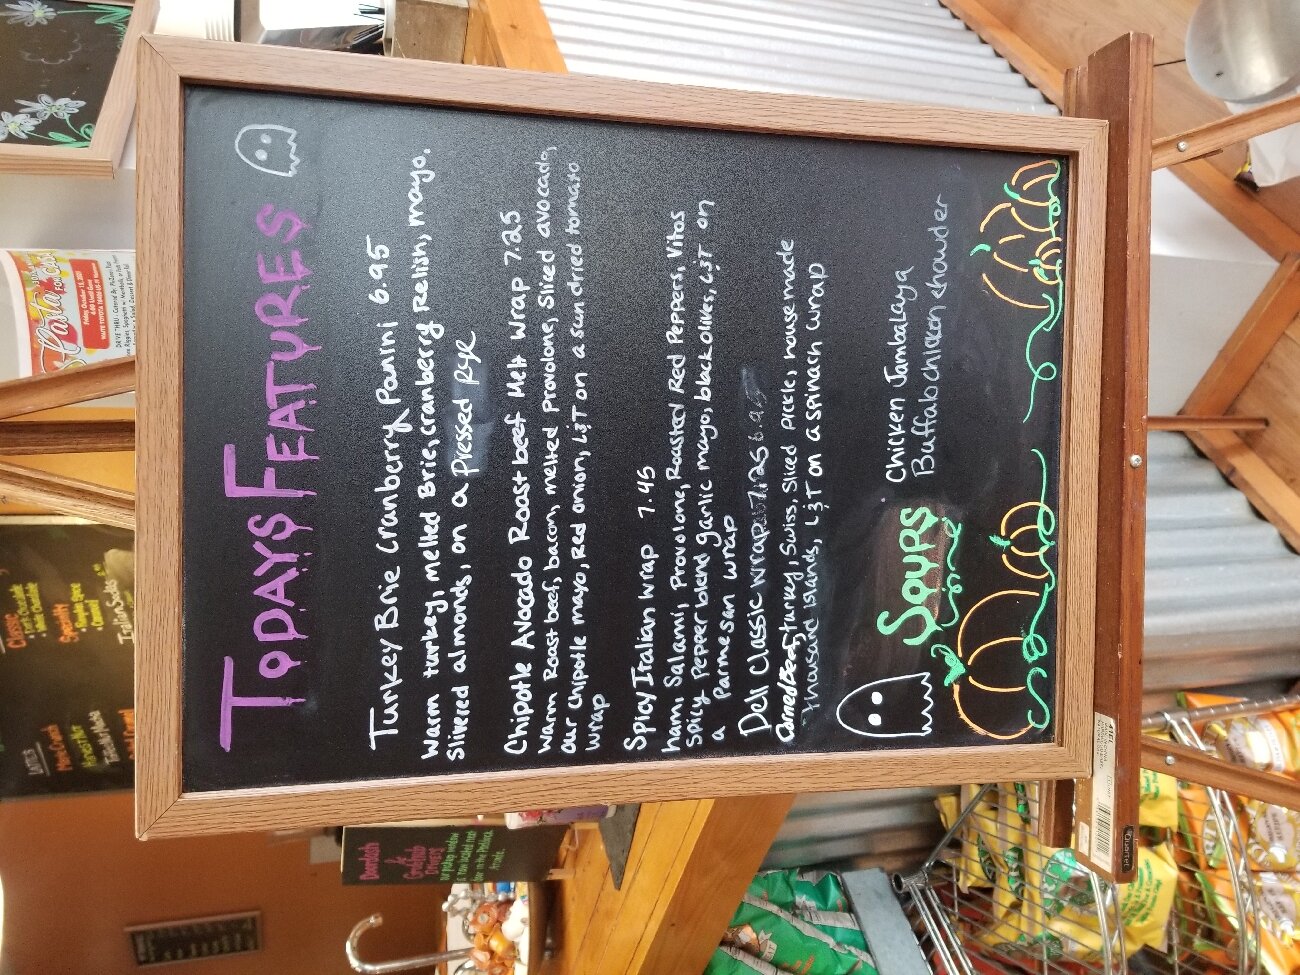 TODAYS FEATURES
Turkey Brie Cranberry Panini 6.95
Warm turkey, melted Brie, cranberry Relish, mayo.
Slivered almonds, on a Pressed Rye
Chipotle Avocado Roast beef Melt Wrap 7.25
Warm Roast beef, bacon, melted provolone, Sliced avocado,
our chipotle mayo, red onion, L&T on a sun dried tomato
wrap
Spicy Italian Wrap 7.45
ham, Salami, Provolone, Roasted Red Peppers, Vitos
Spicy Pepper blend garlic mayo, black olives, L&T on
a Parmesan wrap
Deli Classic Wrap 7.25 6.95
Corned Beef, turkey, Swiss, Sliced Pickle, housemade
Thousand Islands, L&T on a spinach wrap
SOUPS
Chicken Jambalaya
Buffalo chicken chowder
Pasta
FOR CASA
Friday, October 15, 2021
Classic
Specialty
Italian Sodas
Lattes
Doordash
&
Grubhub
Drivers
Quartet